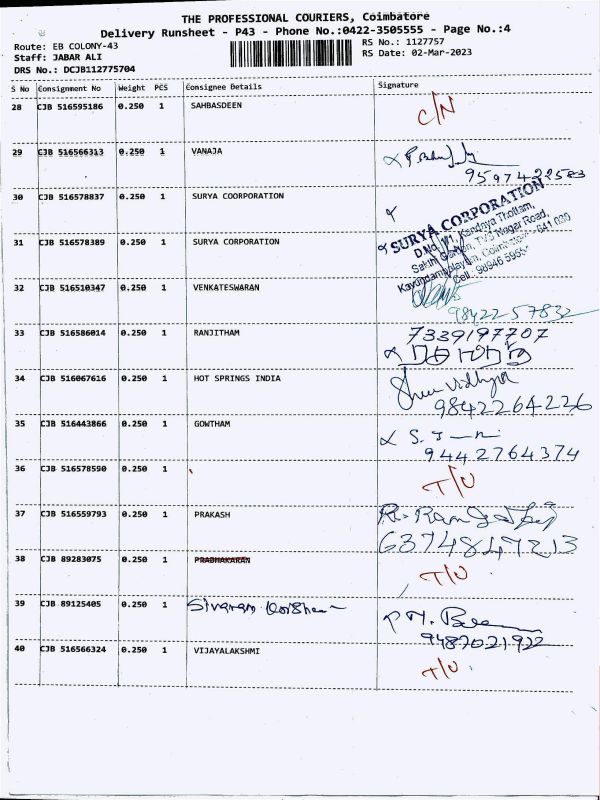 THE PROFESSIONAL COURIERS, Coimbatore
Delivery Runsheet - P43 - Phone No.:0422-3505555 - Page No.:4
Route: EB COLONY-43
RS No.: 1127757
Staff: JABAR ALI
RS Date: 02-Mar-2023
DRS No.: DCJB112775704
S No Consignment No Weight PCS Consignee Details Signature
28 CJB 516595186 0.250 1 SAHBASDEEN C/N
29 CJB 516566313 0.250 1 VANAJA
30 CJB 516578837 0.250 1 SURYA COORPORATION
SURYA CORPORATION
31 CJB 516578389 0.250 1 SURYA CORPORATION
32 CJB 516510347 0.250 1 VENKATESWARAN
98422 57832
33 CJB 516586014 0.250 1 RANJITHAM 7339197707
34 CJB 516067616 0.250 1 HOT SPRINGS INDIA
9842264226
35 CJB 516443866 0.250 1 GOWTHAM
9442764374
36 CJB 516578590 0.250 1 T/U
37 CJB 516559793 0.250 1 PRAKASH
6374847213
38 CJB 89283075 0.250 1 PRABHAKARAN T/U
39 CJB 89125405 0.250 1 Sivaram
9487021922
40 CJB 516566324 0.250 1 VIJAYALAKSHMI T/U